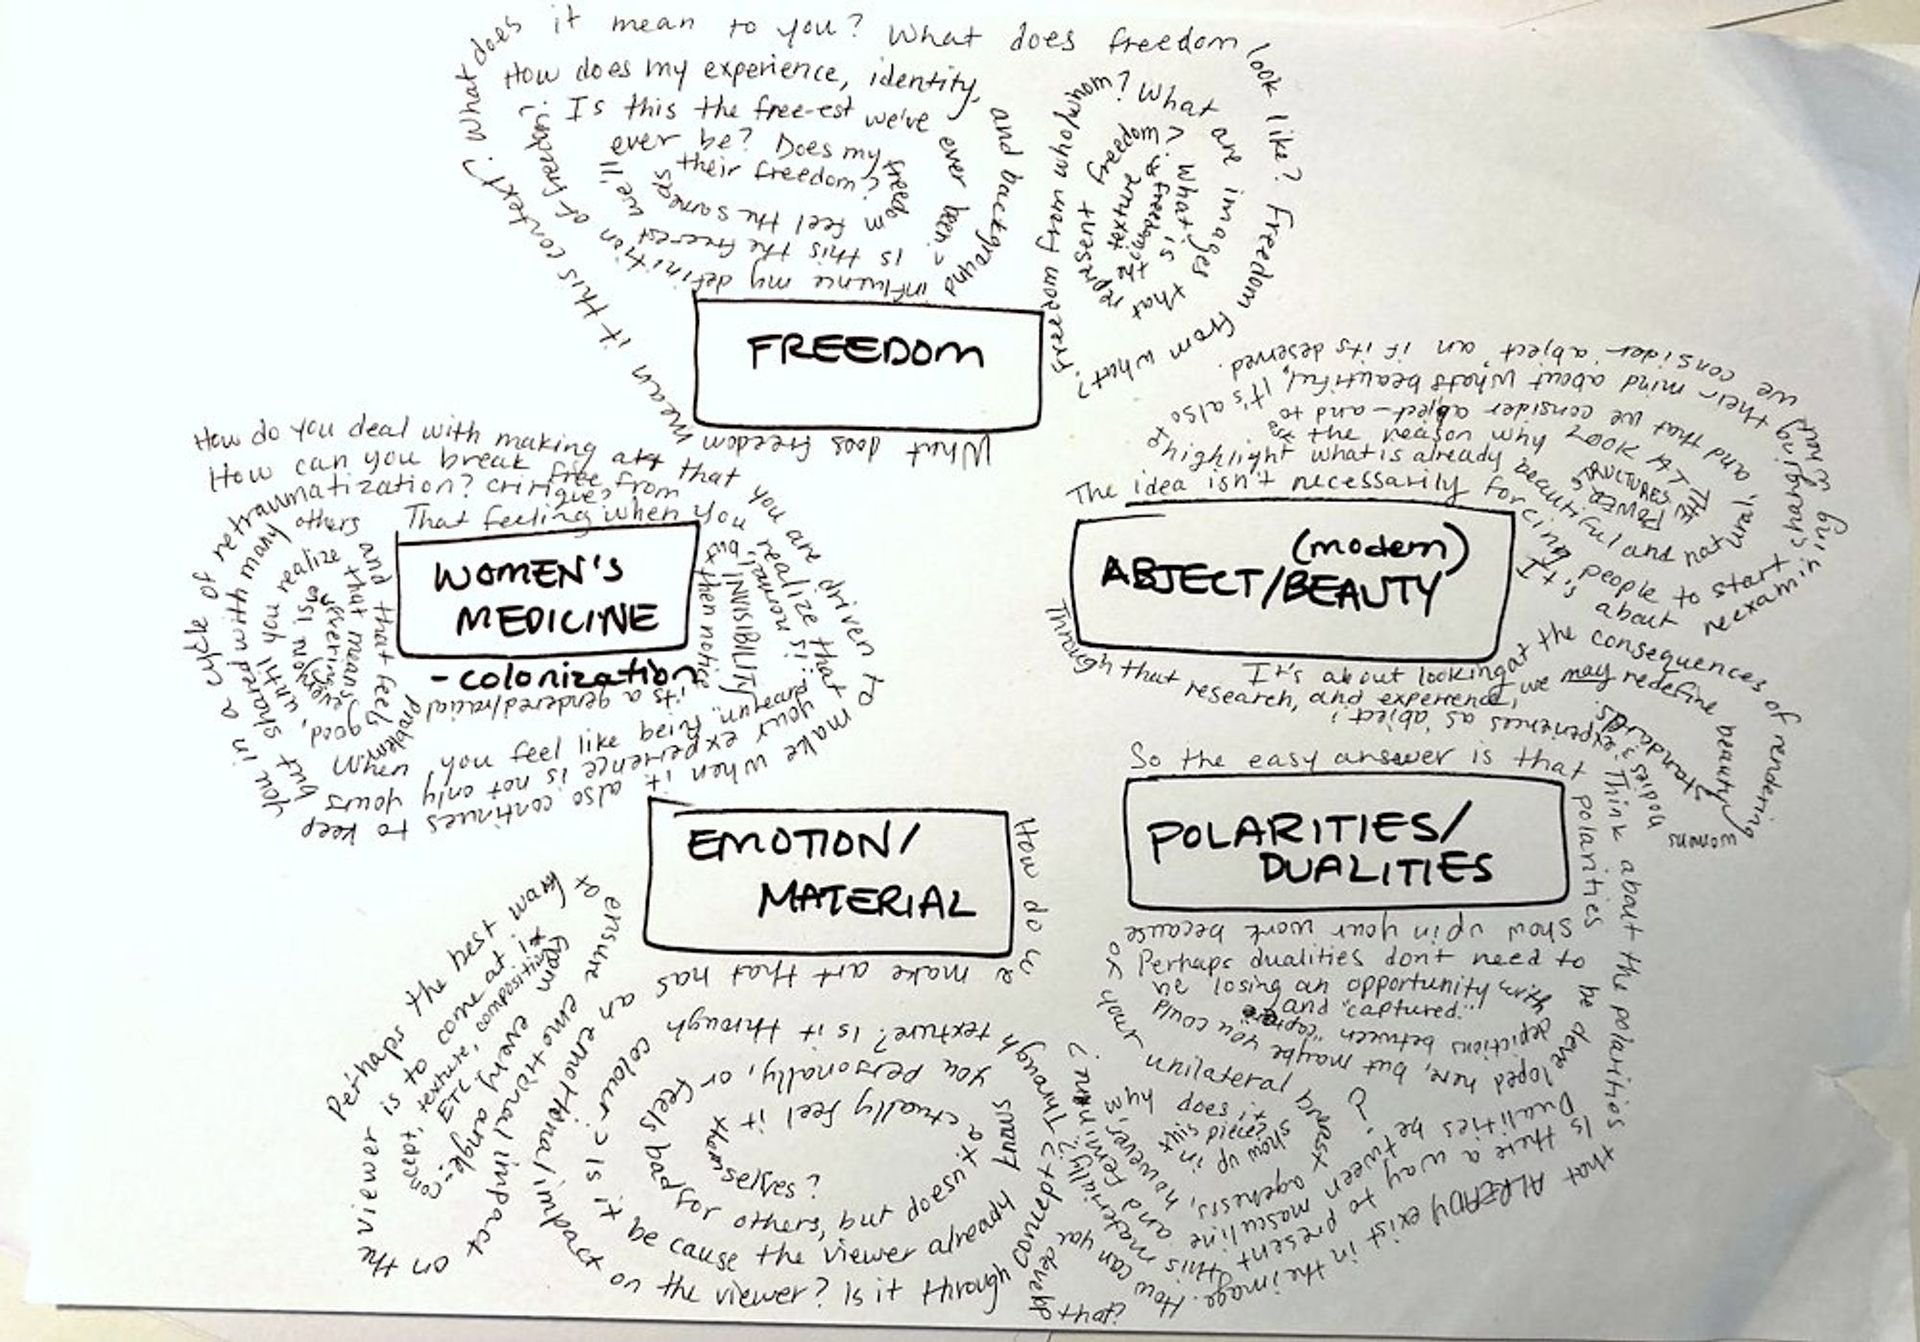 What does freedom
mean it this context? What does it mean to you? What does freedom look like? freedom from what?
freedom from who/whom? What are images that
represent freedom? What is the
texture of freedom?
How does my experience, identity, and background
influence my definition of freedom?
Is this the free-est we've ever been?
is this the freeest we'll
ever be? Does my freedom
feel the same as
their freedom?
FREEDOM
How do you deal with making art that you are driven to make when it also continues to keep
you in a cycle of retraumatization?
How can you break free from
critiques?
That feeling when you realize that
your experience is not only yours
but shared with many others and that feels
good, until you realize that that means
everyone is
suffering
When you feel like being
problem
its a gendered/racial
INVISIBILITY
then notice
WOMEN'S
MEDICINE
- colonization
The idea isn't necessarily forcing people to start
reexamining why
changing their mind about whats beautiful,
we consider "abject" an if its deserved.
It's also to
highlight what is already beautiful and not
and that we consider abject - and to
LOOK AT THE
the reason why
THE POWER
STRUCTURES
It's about
ABJECT/BEAUTY
(modern)
It's about looking at the consequences of rendering
womens bodies & experiences as abject;
Through that research, and experience, we may redefine beauty
standards.
So the easy answer is that polarities
show up in your work because
Think about the polarities
that ALREADY exist in the image.
POLARITIES/
DUALITIES
Perhaps dualities don't need to be developed here, but maybe you could
be losing an opportunity with
depictions between "capture"
and "captured."
Is there a way to present
Dualities between masculine
and feminine?
How can you develop
this materially
unilateral breast agenesis, however, hym
does it
show up in
this piece?
EMOTION/
MATERIAL
How do we make art that has
an emotional impact on the viewer? Is it through
colour? Is it because the viewer already
knows
you personally, or feels bad for others, but doesn't
actually feel it
themselves?
texture? Is it through
Through concept?
Perhaps the best way to ensure emotional impact on
the viewer is to come at it from every angle:
concept, texture, composition,
ETC